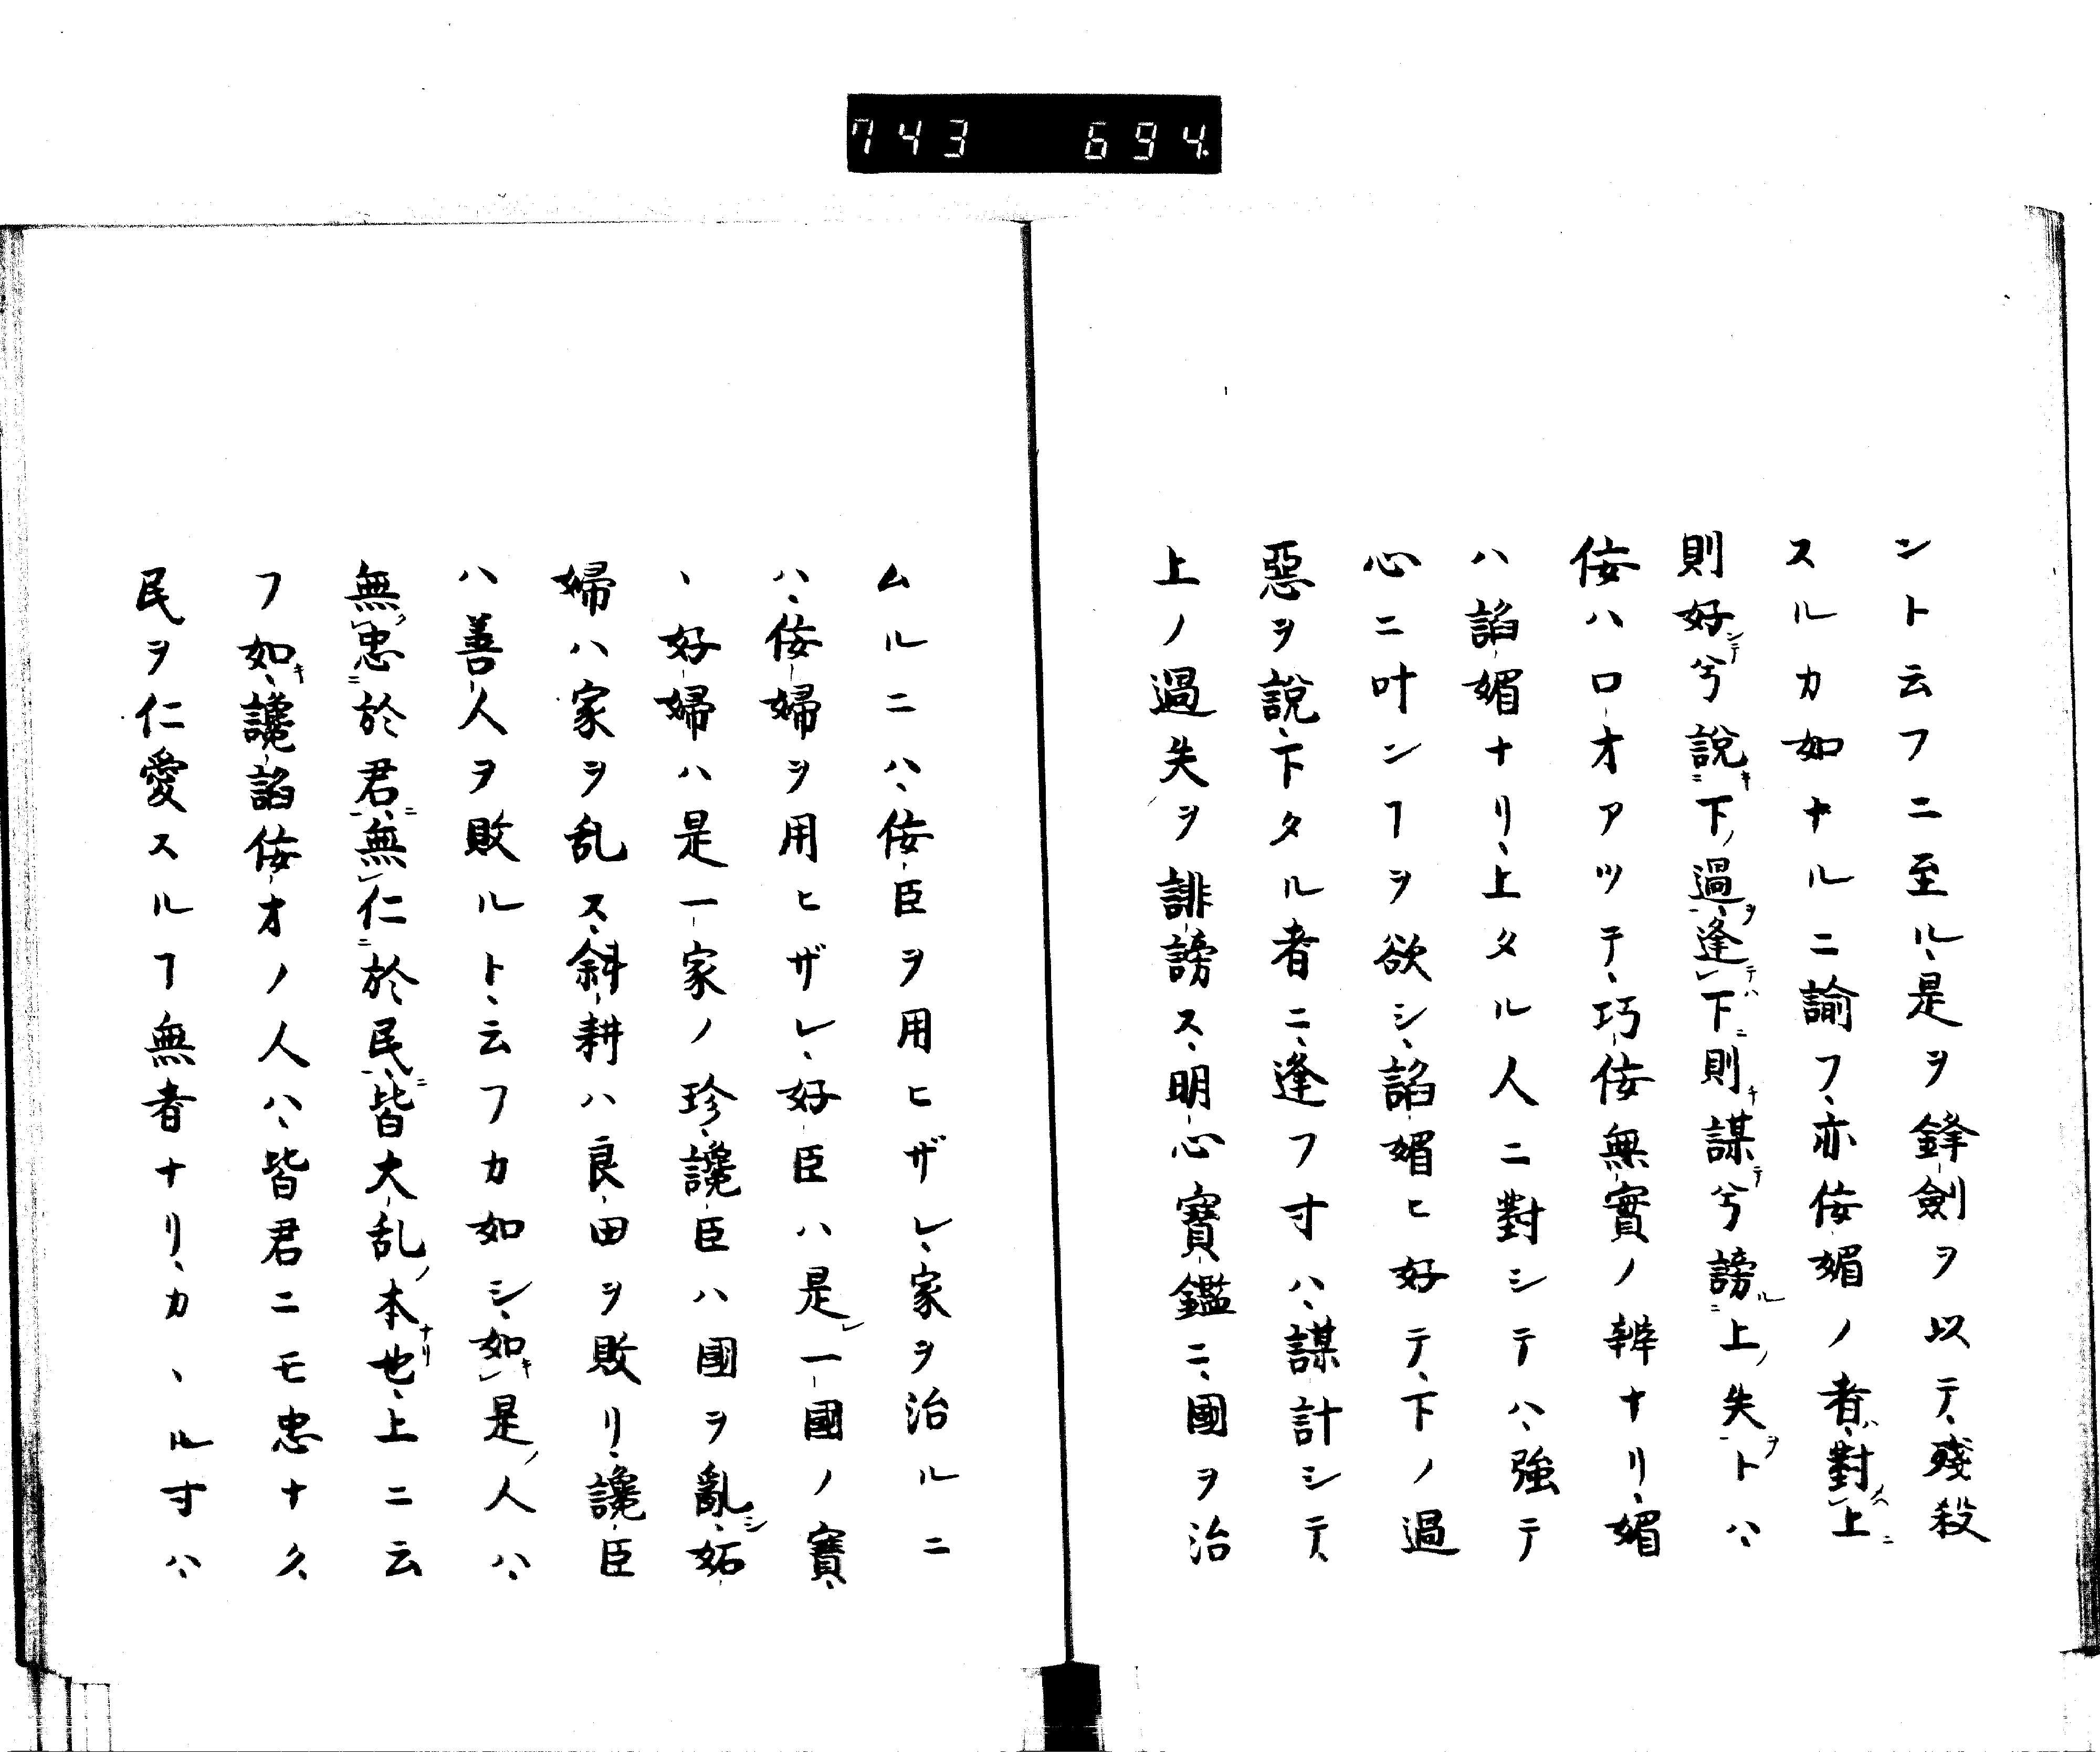 743 694.
ント云フニ至ル、是ヲ鋒劍ヲ以テ、殘殺
スルカ如ナルニ諭フ、亦佞媚ノ者ハ、對ヘレ上ニ
則好ンテ兮説ニ下ノ過ヲ一、逢テハレ下ニ則キ謀テ兮謗ルニ上ノ失ヲ一トハ、
佞ハロオアツテ、巧佞無實ノ辨ナリ、媚
ハ諂媚ナリ、上タル人ニ對シテハ、強テ
心ニ叶ンヿヲ欲シ、諂媚ヒ好テ、下ノ過
惡ヲ説、下タル者ニ、逢フ寸ハ、謀計シテ、
上ノ過失ヲ誹謗ス、明心寶鑑ニ、國ヲ治
ムルニハ、佞臣ヲ用ヒザレ、家ヲ治ルニ
ハ、佞婦ヲ用ヒザレ、好臣ハ是レ一國ノ寶、
、好婦ハ是一家ノ珍、讒臣ハ國ヲ亂シ、妬
婦ハ家ヲ乱ス、斜耕ハ良田ヲ敗リ、讒臣
ハ善人ヲ敗ルト、云フカ如シ、如キレ是ノ人ハ、
無レ忠ニ於君ニ一、無レ仁ニ於民ニ一、皆大乱ノ本ナリ也、上ニ云
フ如キ、讒諂佞オノ人ハ、皆君ニモ忠ナク、
民ヲ仁愛スルヿ無者ナリ、カヽル寸ハ、